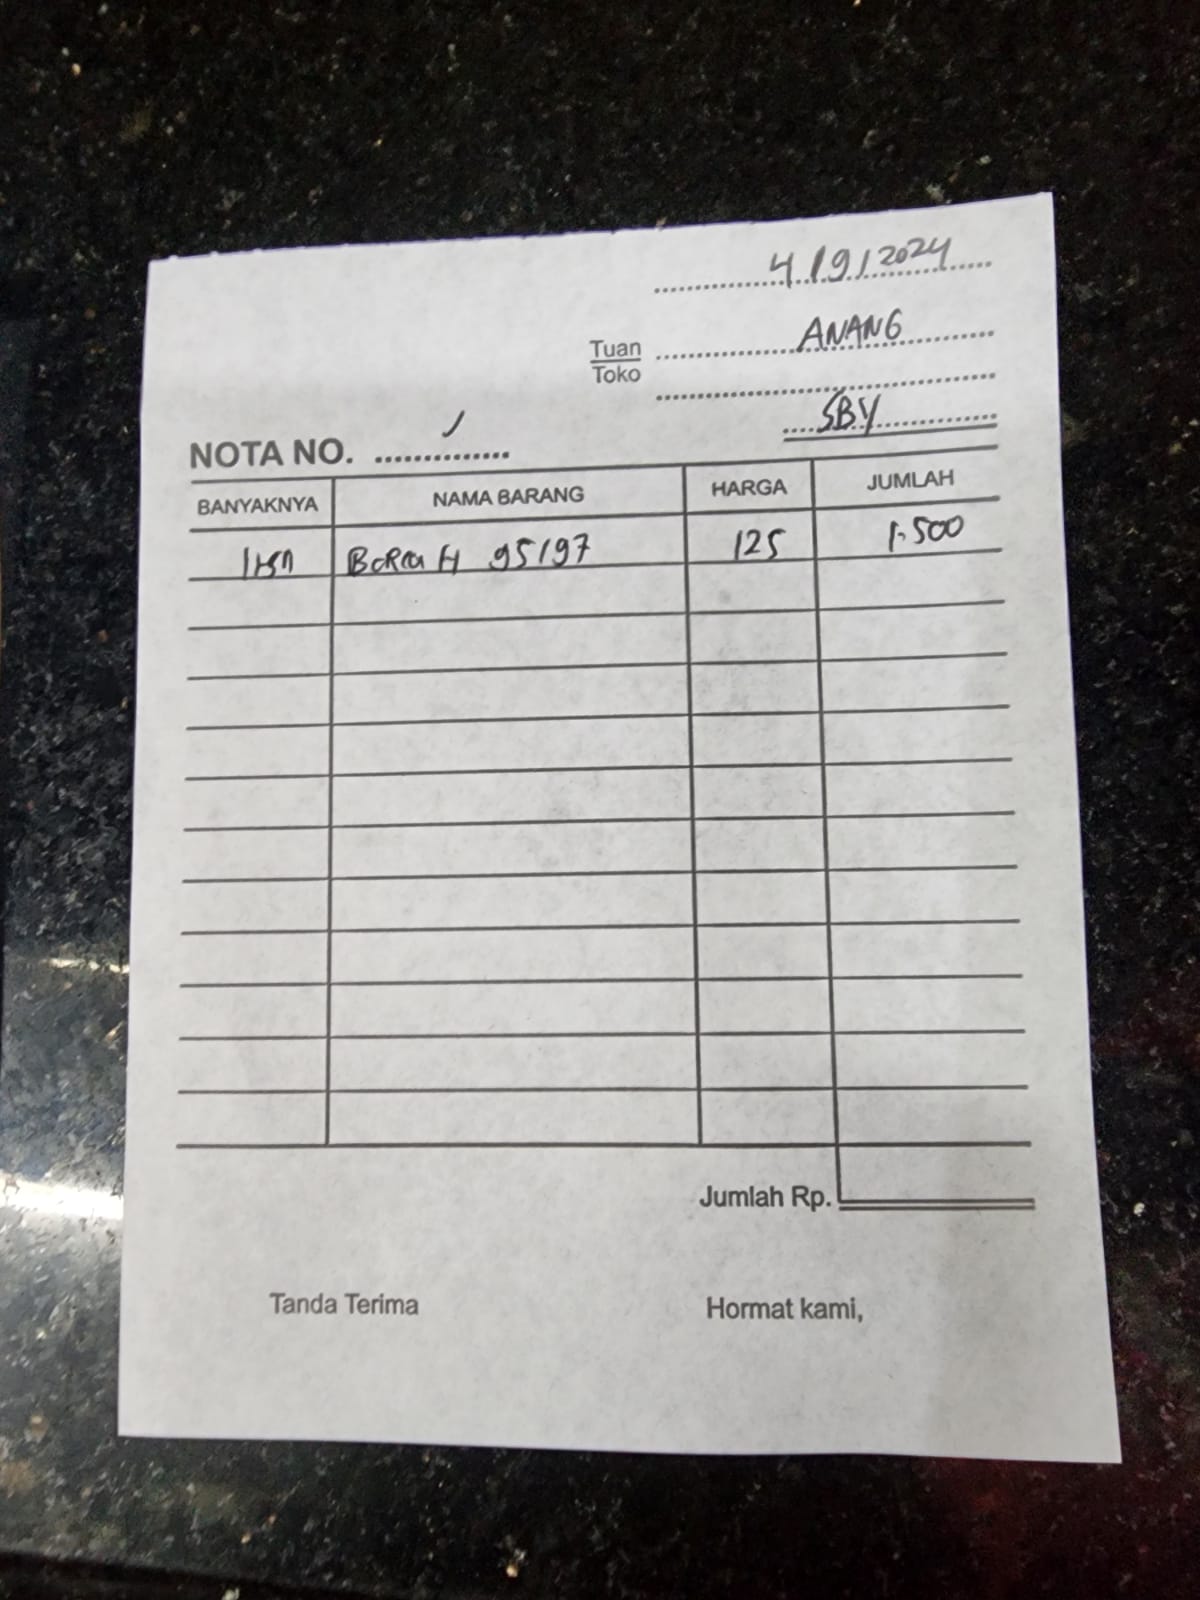 4/9/2024
Tuan ANANG
Toko
SBY
NOTA NO.
BANYAKNYA NAMA BARANG HARGA JUMLAH
95/97 125 1.500
Jumlah Rp.
Tanda Terima Hormat kami,